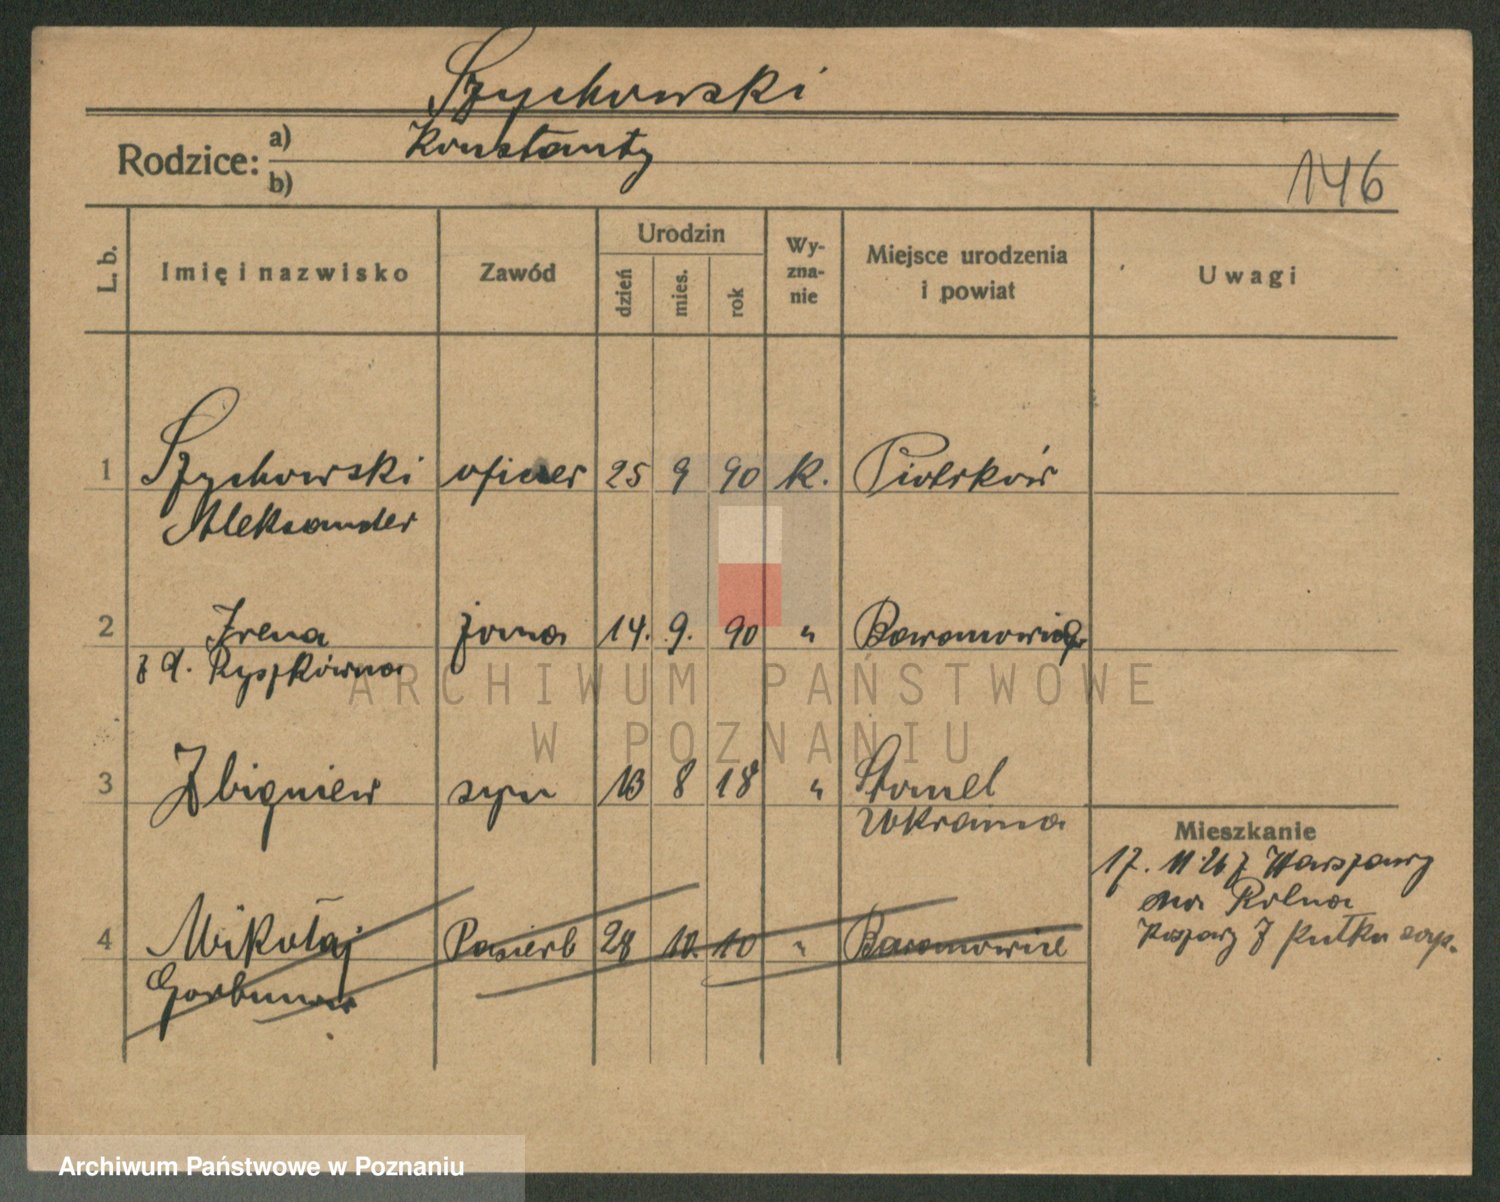 Szychowski
Rodzice: a) Konstanty
b)
146
L. b. Imię i nazwisko Zawód Urodzin dzień mies. rok Wy-zna-nie Miejsce urodzenia i powiat Uwagi
1 Szychowski oficer 25 9 90 k. Piotrków
Aleksander
2 Irena żona 14. 9. 90 " Baranowicze
z d. Ryszkówna
3 Zbigniew syn 13 8 18 "
Ukraina
Mieszkanie
17. 11. 26 z Warszawy
na Rolna
4 Mikołaj Pasierb 28 10. 10 " Baranowicze
Gorbunow
ARCHIWUM PAŃSTWOWE
W POZNANIU
Archiwum Państwowe w Poznaniu